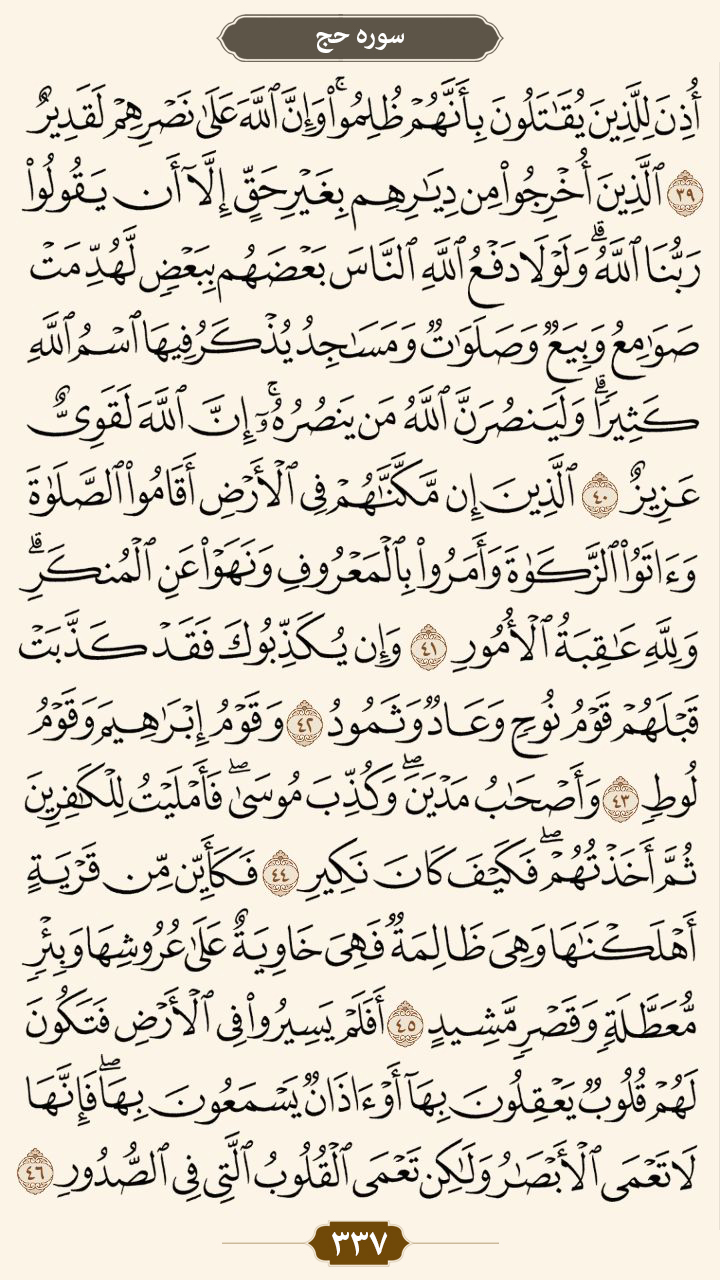 سوره حج
أُذِنَ لِلَّذِينَ يُقَٰتَلُونَ بِأَنَّهُمْ ظُلِمُوا۟ۚ وَإِنَّ ٱللَّهَ عَلَىٰ نَصْرِهِمْ لَقَدِيرٌ
٣٩ ٱلَّذِينَ أُخْرِجُوا۟ مِن دِيَٰرِهِم بِغَيْرِ حَقٍّ إِلَّآ أَن يَقُولُوا۟
رَبُّنَا ٱللَّهُۗ وَلَوْلَا دَفْعُ ٱللَّهِ ٱلنَّاسَ بَعْضَهُم بِبَعْضٍ لَّهُدِّمَتْ
صَوَٰمِعُ وَبِيَعٌ وَصَلَوَٰتٌ وَمَسَٰجِدُ يُذْكَرُ فِيهَا ٱسْمُ ٱللَّهِ
كَثِيرًاۗ وَلَيَنصُرَنَّ ٱللَّهُ مَن يَنصُرُهُۥٓۚ إِنَّ ٱللَّهَ لَقَوِىٌّ
عَزِيزٌ ٤٠ ٱلَّذِينَ إِن مَّكَّنَّٰهُمْ فِى ٱلْأَرْضِ أَقَامُوا۟ ٱلصَّلَوٰةَ
وَءَاتَوُا۟ ٱلزَّكَوٰةَ وَأَمَرُوا۟ بِٱلْمَعْرُوفِ وَنَهَوْا۟ عَنِ ٱلْمُنكَرِۗ
وَلِلَّهِ عَٰقِبَةُ ٱلْأُمُورِ ٤١ وَإِن يُكَذِّبُوكَ فَقَدْ كَذَّبَتْ
قَبْلَهُمْ قَوْمُ نُوحٍ وَعَادٌ وَثَمُودُ ٤٢ وَقَوْمُ إِبْرَٰهِيمَ وَقَوْمُ
لُوطٍ ٤٣ وَأَصْحَٰبُ مَدْيَنَۖ وَكُذِّبَ مُوسَىٰۖ فَأَمْلَيْتُ لِلْكَٰفِرِينَ
ثُمَّ أَخَذْتُهُمْۖ فَكَيْفَ كَانَ نَكِيرِ ٤٤ فَكَأَيِّن مِّن قَرْيَةٍ
أَهْلَكْنَٰهَا وَهِىَ ظَالِمَةٌ فَهِىَ خَاوِيَةٌ عَلَىٰ عُرُوشِهَا وَبِئْرٍ
مُّعَطَّلَةٍ وَقَصْرٍ مَّشِيدٍ ٤٥ أَفَلَمْ يَسِيرُوا۟ فِى ٱلْأَرْضِ فَتَكُونَ
لَهُمْ قُلُوبٌ يَعْقِلُونَ بِهَآ أَوْ ءَاذَانٌ يَسْمَعُونَ بِهَاۖ فَإِنَّهَا
لَا تَعْمَى ٱلْأَبْصَٰرُ وَلَٰكِن تَعْمَى ٱلْقُلُوبُ ٱلَّتِى فِى ٱلصُّدُورِ ٤٦
٣٣٧